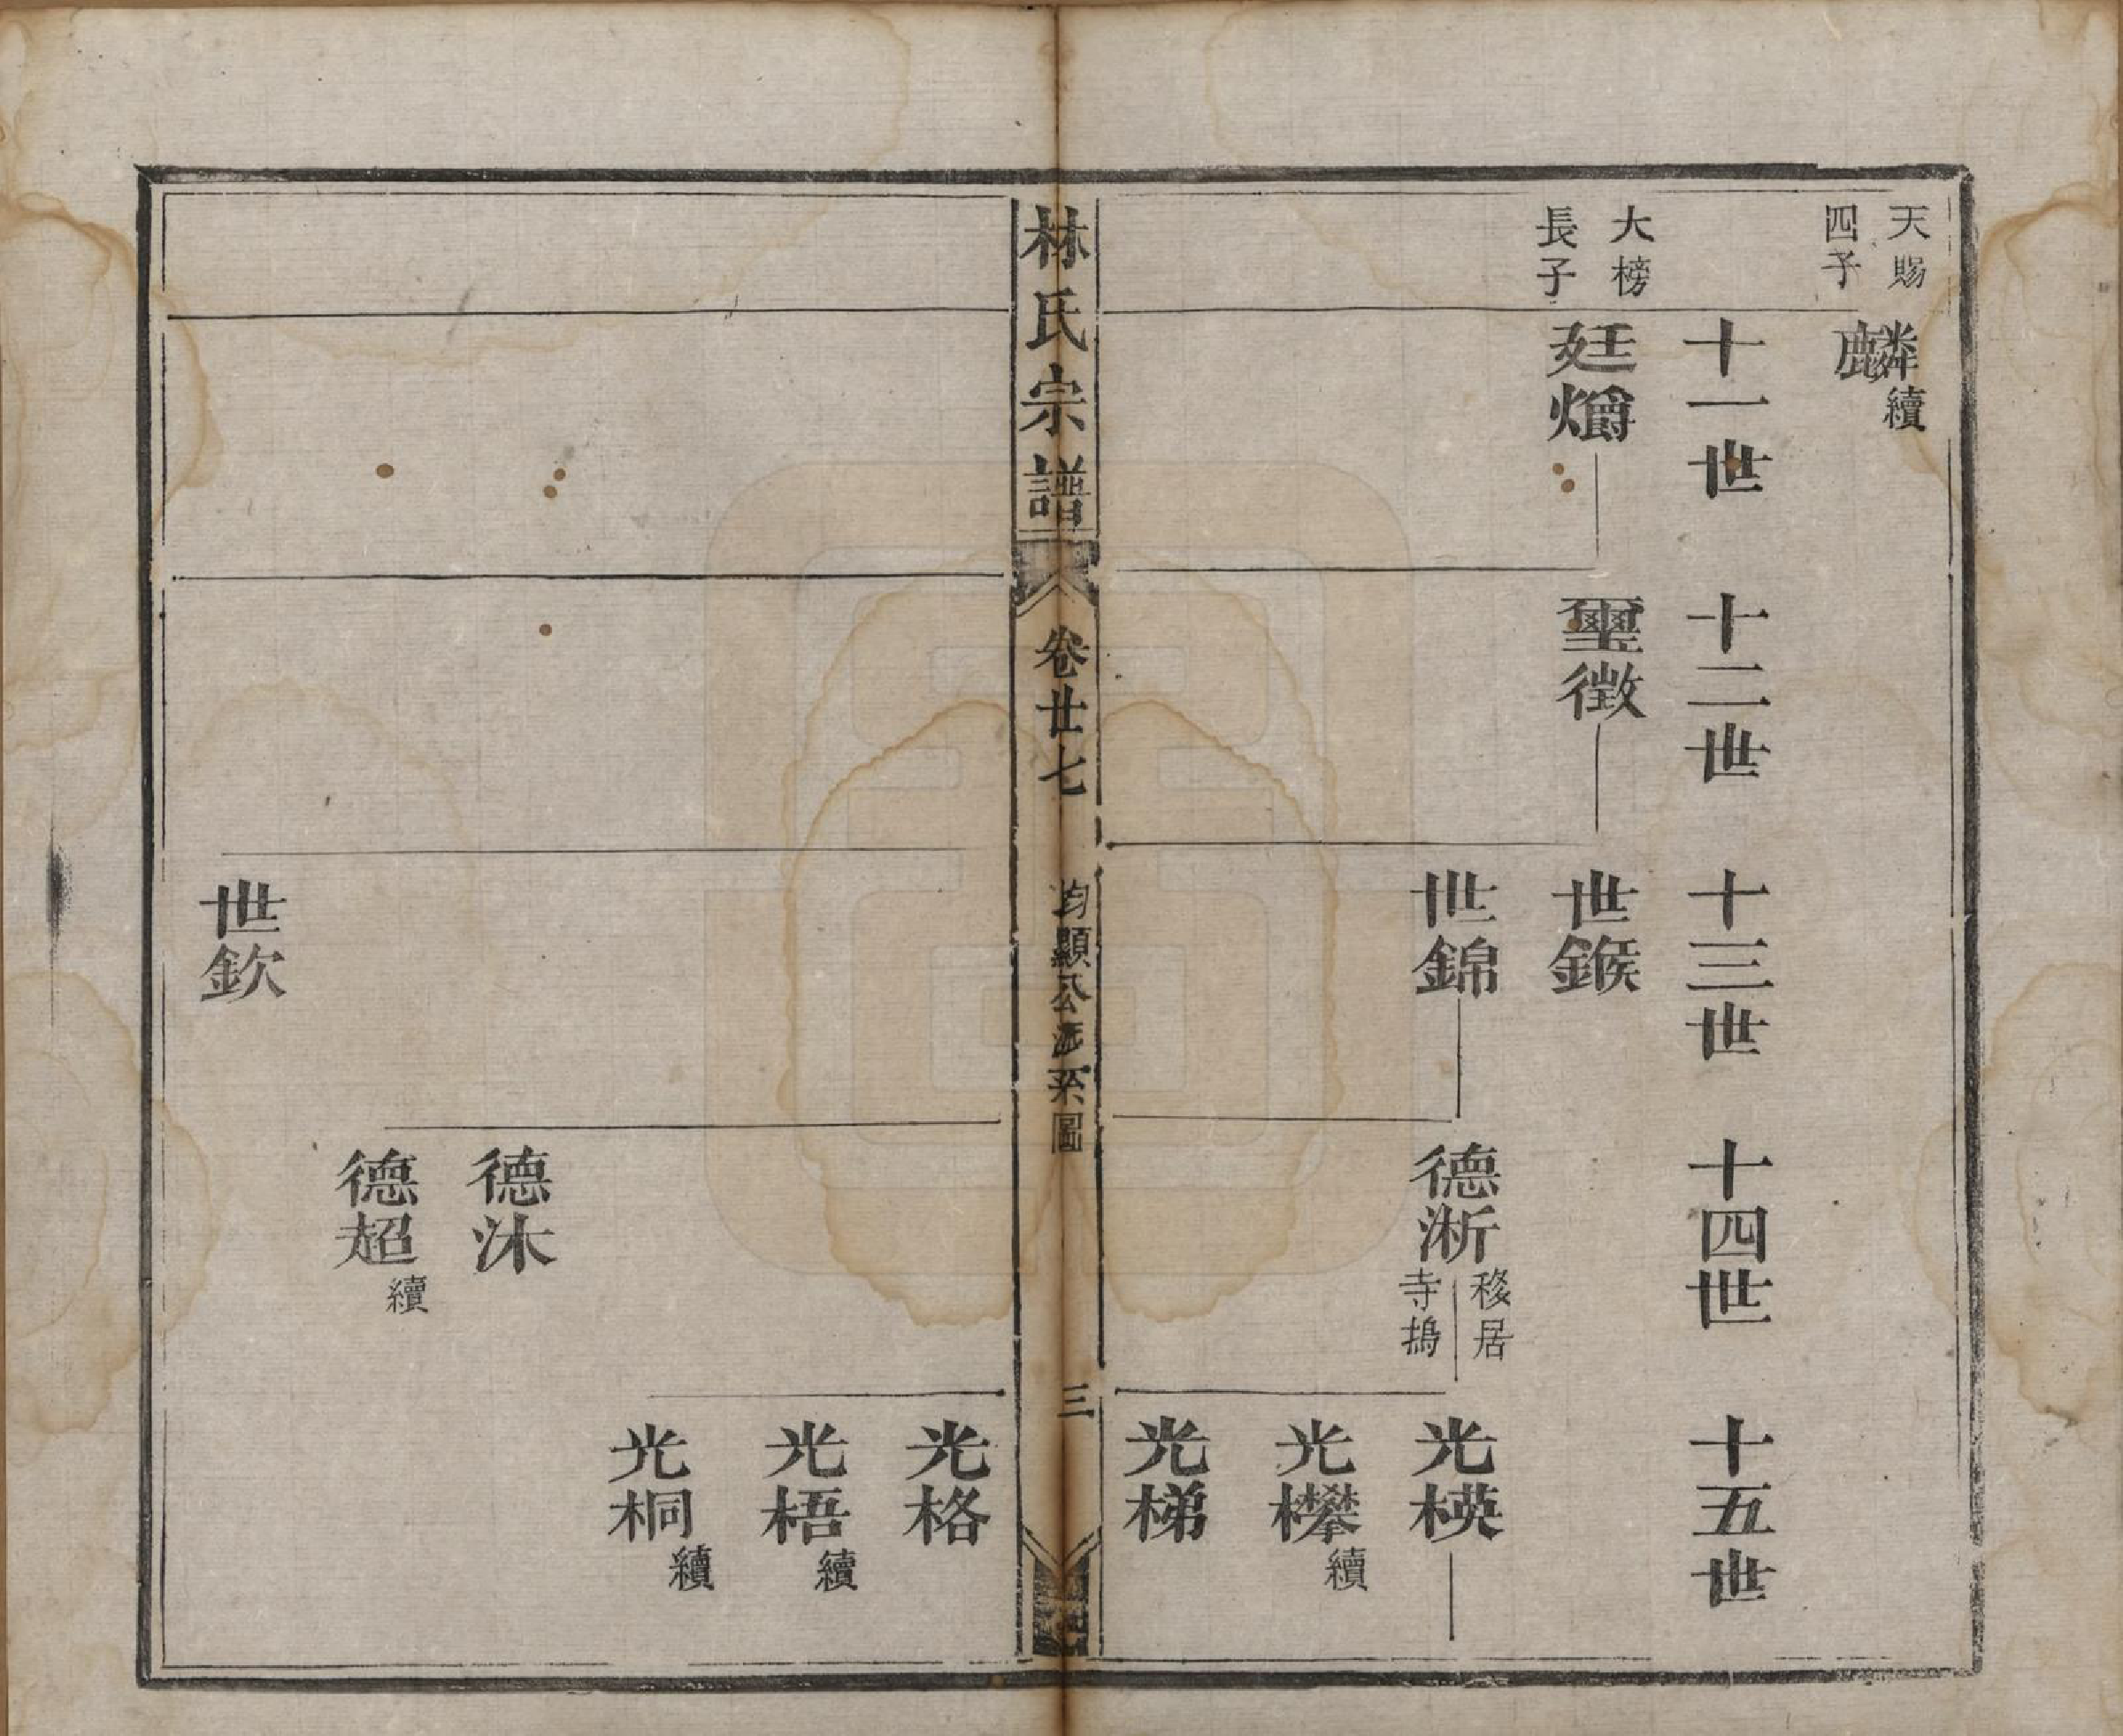 天賜
四子
麟續
十一世
十二世
十三世
十四世
十五世
大榜
長子
廷爝
璽徵
世鍭
世錦
德淅
移居
寺塢
光楧
光㰋續
光梯
林氏宗譜
卷廿七
均顯公派系圖
三
光格
光梧續
光桐續
德沐
德超續
世欽